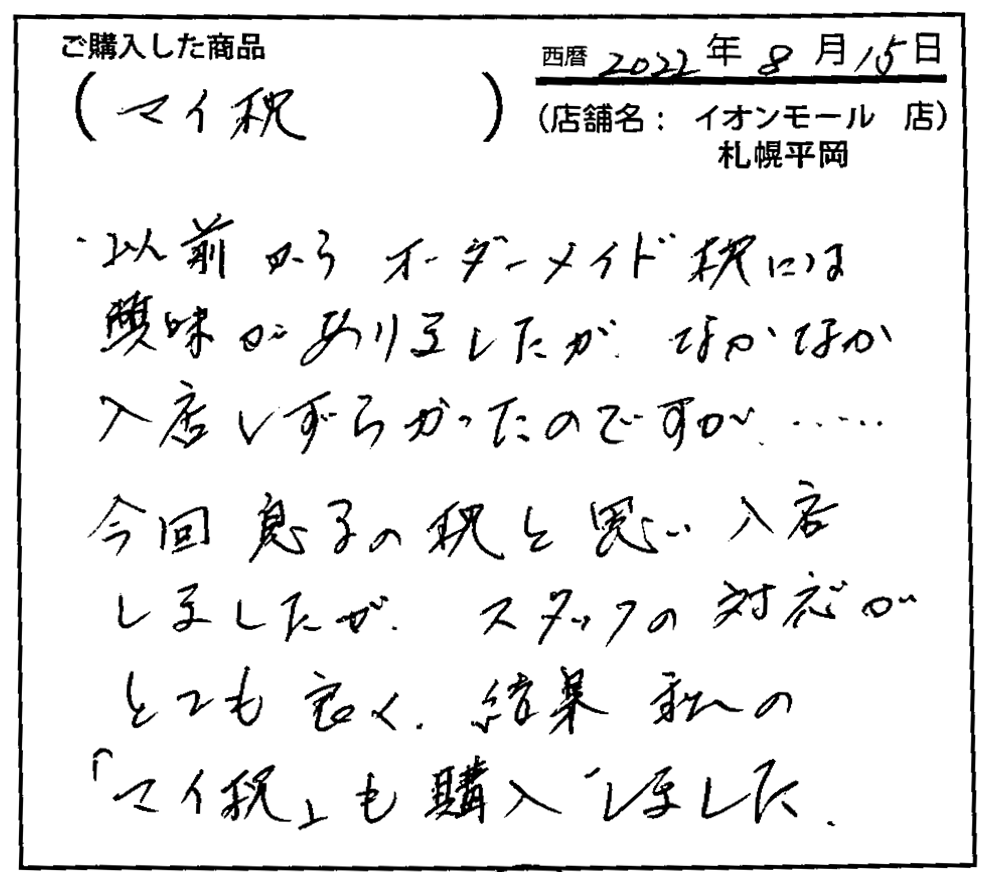 ご購入した商品
(マイ枕)
西暦 2022年8月15日
(店舗名：イオンモール 店)
札幌平岡
・以前からオーダーメイド枕には
興味がありましたが、なかなか
入店しずらかったのですが、……
今回息子の枕と思い入店
しましたが、スタッフの対応が
とても良く、結果私の
「マイ枕」も購入しました。